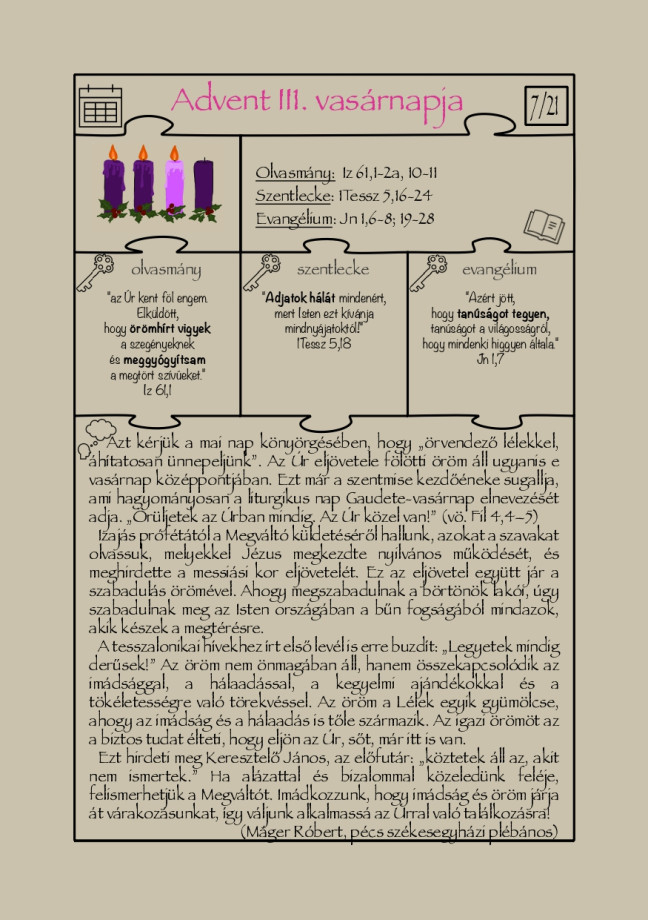 Advent III. vasárnapja
7/21
Olvasmány: Iz 61,1-2a, 10-11
Szentlecke: 1Tessz 5,16-24
Evangélium: Jn 1,6-8; 19-28
olvasmány
"az Úr kent föl engem.
Elküldött,
hogy örömhírt vigyek
a szegényeknek
és meggyógyítsam
a megtört szívüeket."
Iz 61,1
szentlecke
"Adjatok hálát mindenért,
mert Isten ezt kívánja
mindnyájatoktól!"
1Tessz 5,18
evangélium
"Azért jött,
hogy tanúságot tegyen,
tanúságot a világosságról,
hogy mindenki higgyen általa."
Jn 1,7
Azt kérjük a mai nap könyörgésében, hogy „örvendező lélekkel,
áhítatosan ünnepeljünk”. Az Úr eljövetele fölötti öröm áll ugyanis e
vasárnap középpontjában. Ezt már a szentmise kezdőéneke sugallja,
ami hagyományosan a liturgikus nap Gaudete-vasárnap elnevezését
adja. „Örüljetek az Úrban mindig. Az Úr közel van!” (vö. Fil 4,4–5)
Izajás prófétától a Megváltó küldetéséről hallunk, azokat a szavakat
olvassuk, melyekkel Jézus megkezdte nyilvános működését, és
meghirdette a messiási kor eljövetelét. Ez az eljövetel együtt jár a
szabadulás örömével. Ahogy megszabadulnak a börtönök lakói, úgy
szabadulnak meg az Isten országában a bűn fogságából mindazok,
akik készek a megtérésre.
A tesszalonikai hívekhez írt első levél is erre buzdít: „Legyetek mindig
derűsek!” Az öröm nem önmagában áll, hanem összekapcsolódik az
imádsággal, a hálaadással, a kegyelmi ajándékokkal és a
tökéletességre való törekvéssel. Az öröm a Lélek egyik gyümölcse,
ahogy az imádság és a hálaadás is tőle származik. Az igazi örömöt az
a biztos tudat élteti, hogy eljön az Úr, sőt, már itt is van.
Ezt hirdeti meg Keresztelő János, az előfutár: „köztetek áll az, akit
nem ismertek.” Ha alázattal és bizalommal közeledünk feléje,
felismerhetjük a Megváltót. Imádkozzunk, hogy imádság és öröm járja
át várakozásunkat, így váljunk alkalmassá az Úrral való találkozásra!
(Máger Róbert, pécs székesegyházi plébános)